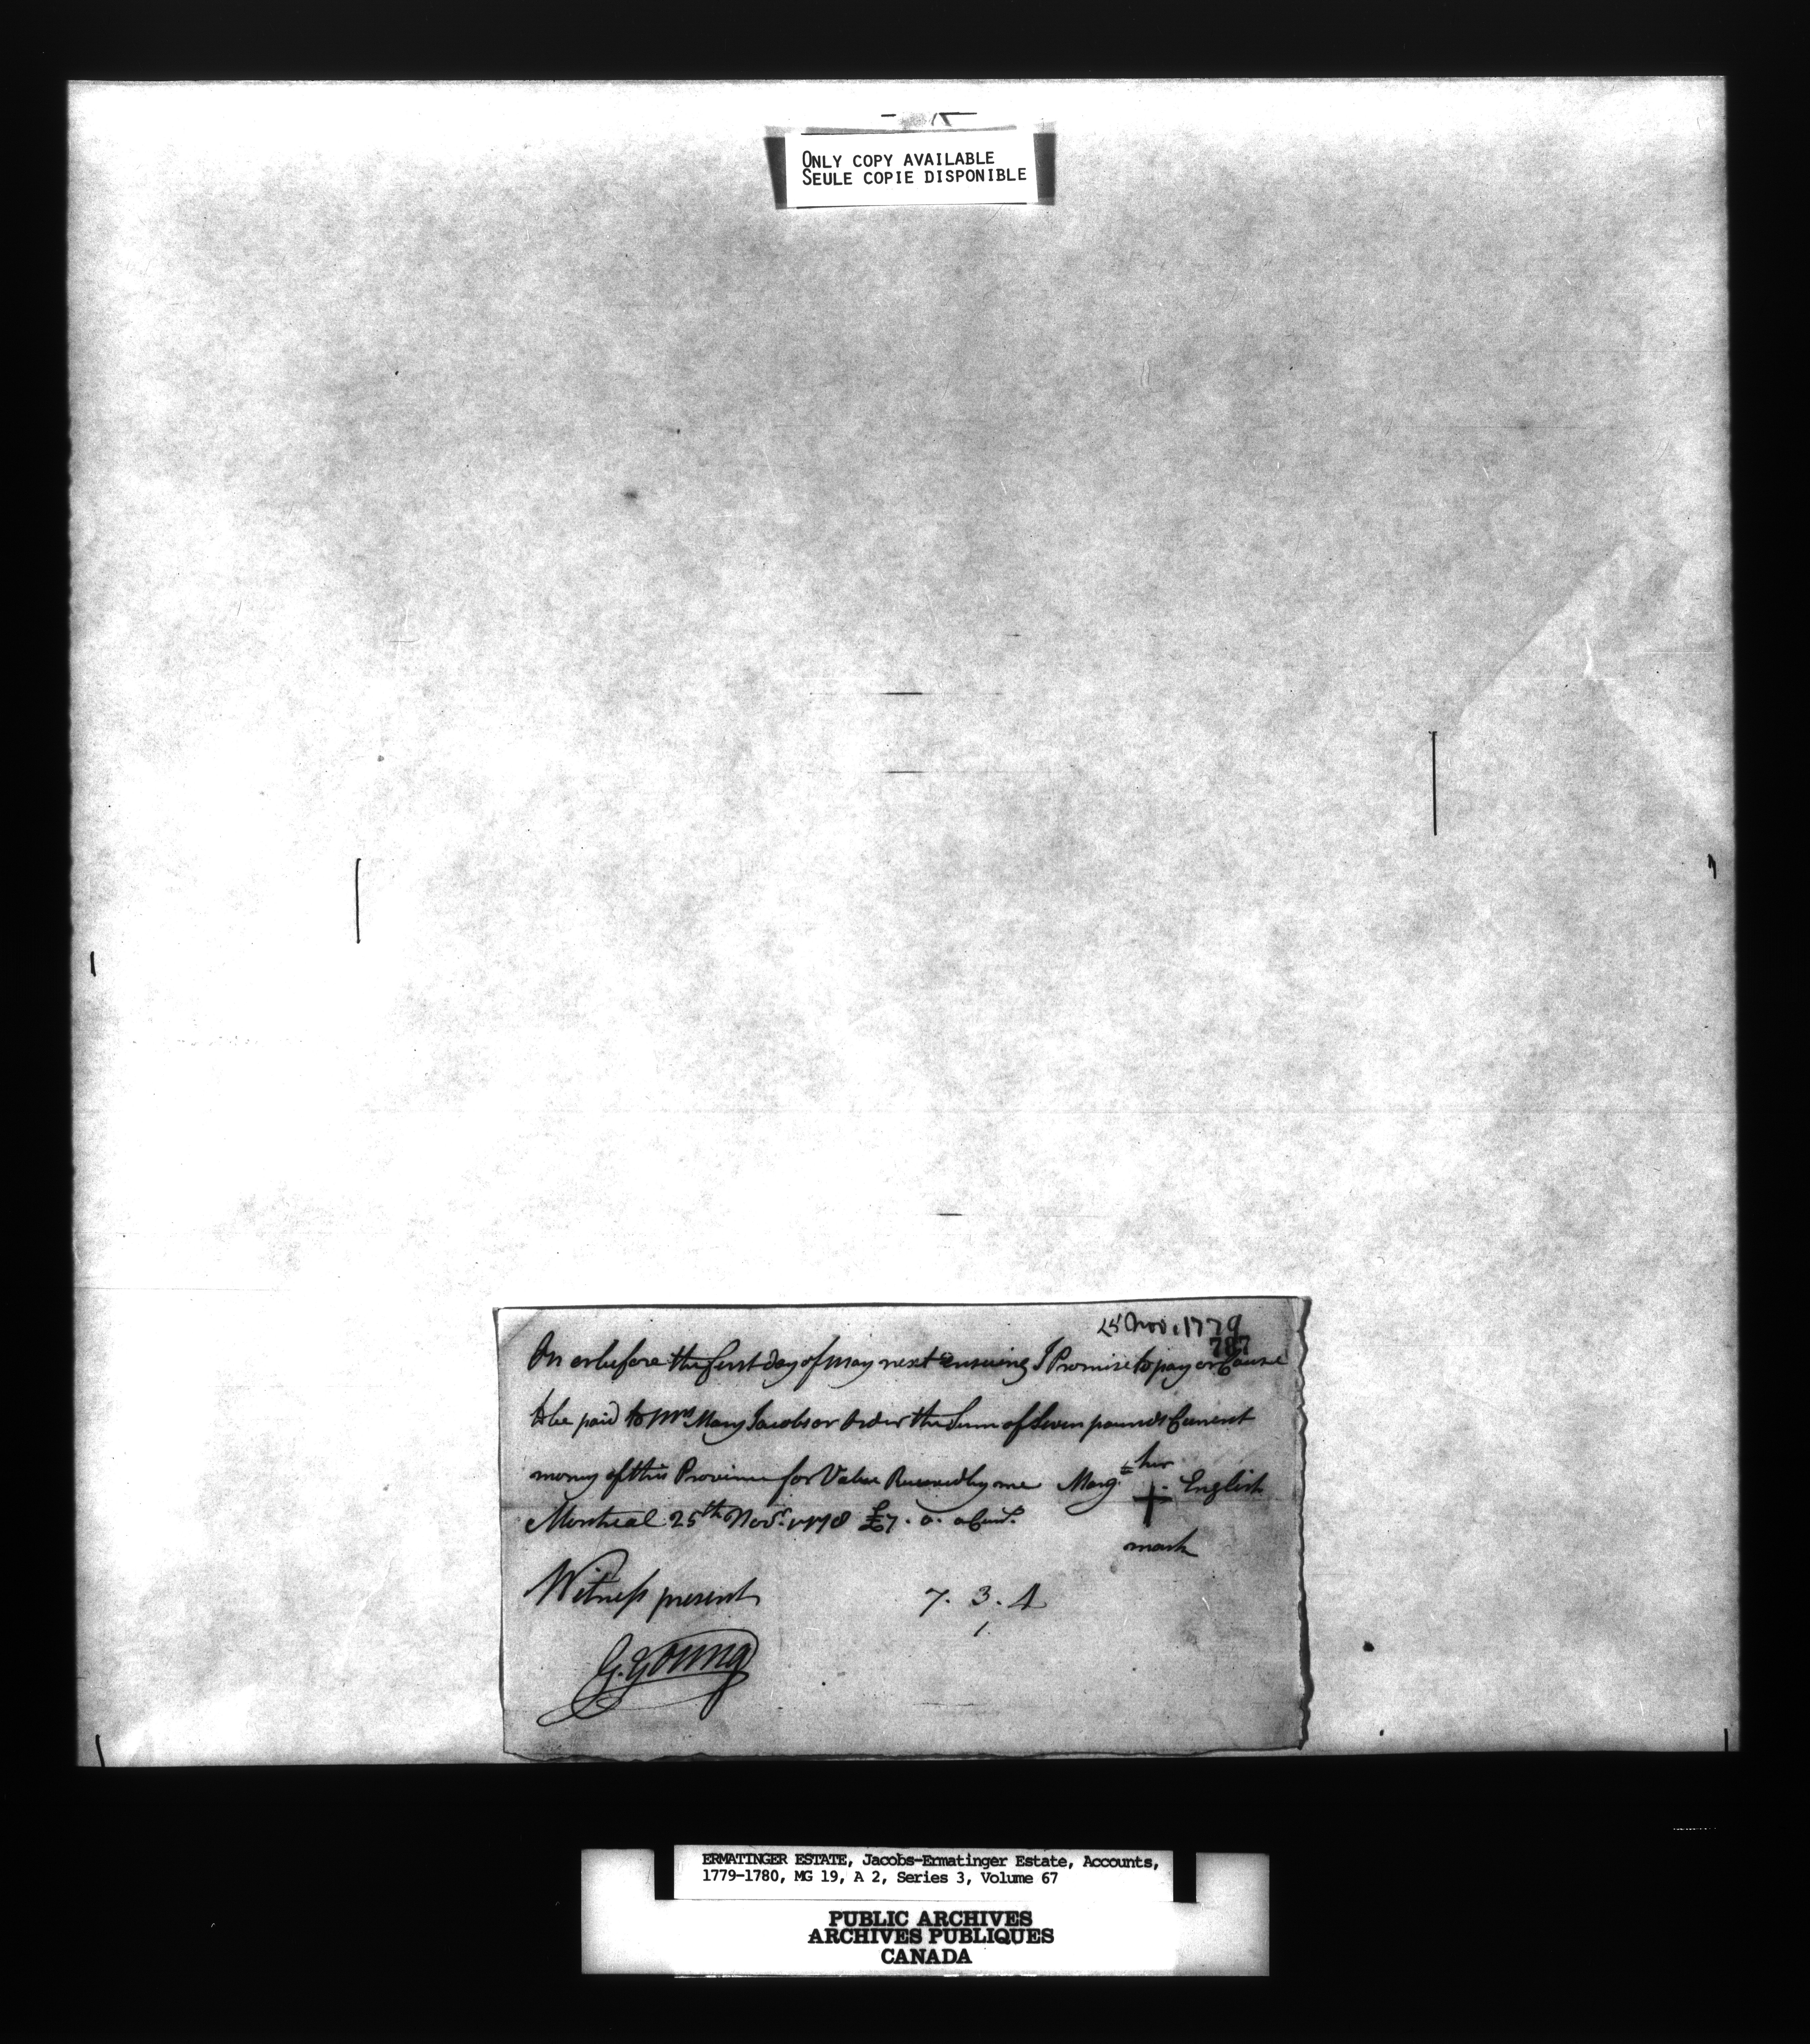 ONLY COPY AVAILABLE
SEULE COPIE DISPONIBLE
25 Nov. 1779
787
On or before the first day of May next ensuing I Promise to pay or Cause
to be paid to Mrs Mary Jacobs or Order the Sum of Seven pounds Current
money of this Province for Value Received by me Marg.t her + English
mark
Montreal 25th Novr. £7. 0. 0 Curt.
Witness present
7. 3. 4
1.
G. Young
ERMATINGER ESTATE, Jacobs-Ermatinger Estate, Accounts,
1779-1780, MG 19, A 2, Series 3, Volume 67
PUBLIC ARCHIVES
ARCHIVES PUBLIQUES
CANADA